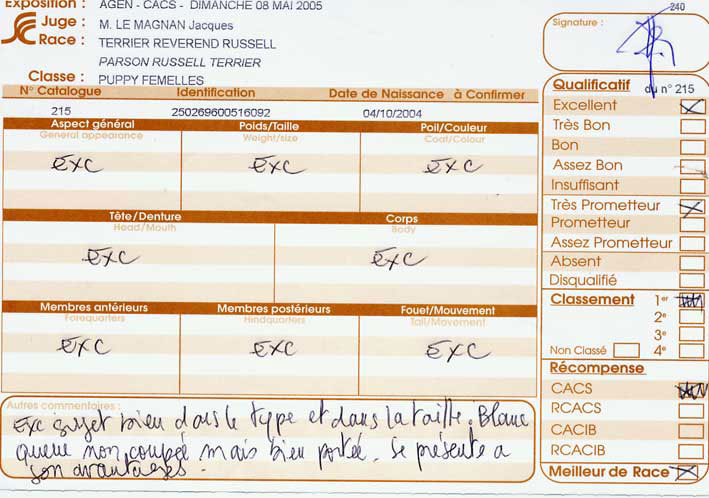 Exposition : AGEN - CACS - DIMANCHE 08 MAI 2005
240
Juge : M. LE MAGNAN Jacques
Signature :
Race : TERRIER REVEREND RUSSELL
PARSON RUSSELL TERRIER
Classe : PUPPY FEMELLES
N° Catalogue Identification Date de Naissance à Confirmer
215 250269600516092 04/10/2004
Qualificatif du n° 215
Excellent
Très Bon
Bon
Assez Bon
Insuffisant
Très Prometteur
Prometteur
Assez Prometteur
Absent
Disqualifié
Aspect général Poids/Taille Poil/Couleur
General appearance Weight/size Coat/Colour
Exc Exc Exc
Tête/Denture Corps
Head/Mouth Body
Exc Exc
Membres antérieurs Membres postérieurs Fouet/Mouvement
Forequarters Hindquarters Tail/Movement
Exc Exc Exc
Classement 1er
2e
3e
Non Classé 4e
Récompense
CACS
RCACS
CACIB
RCACIB
Meilleur de Race
Autres commentaires :
Exc sujet bien dans le type et dans la taille. Blanc
queue non coupée mais bien portée. Se présente a
son avantages.